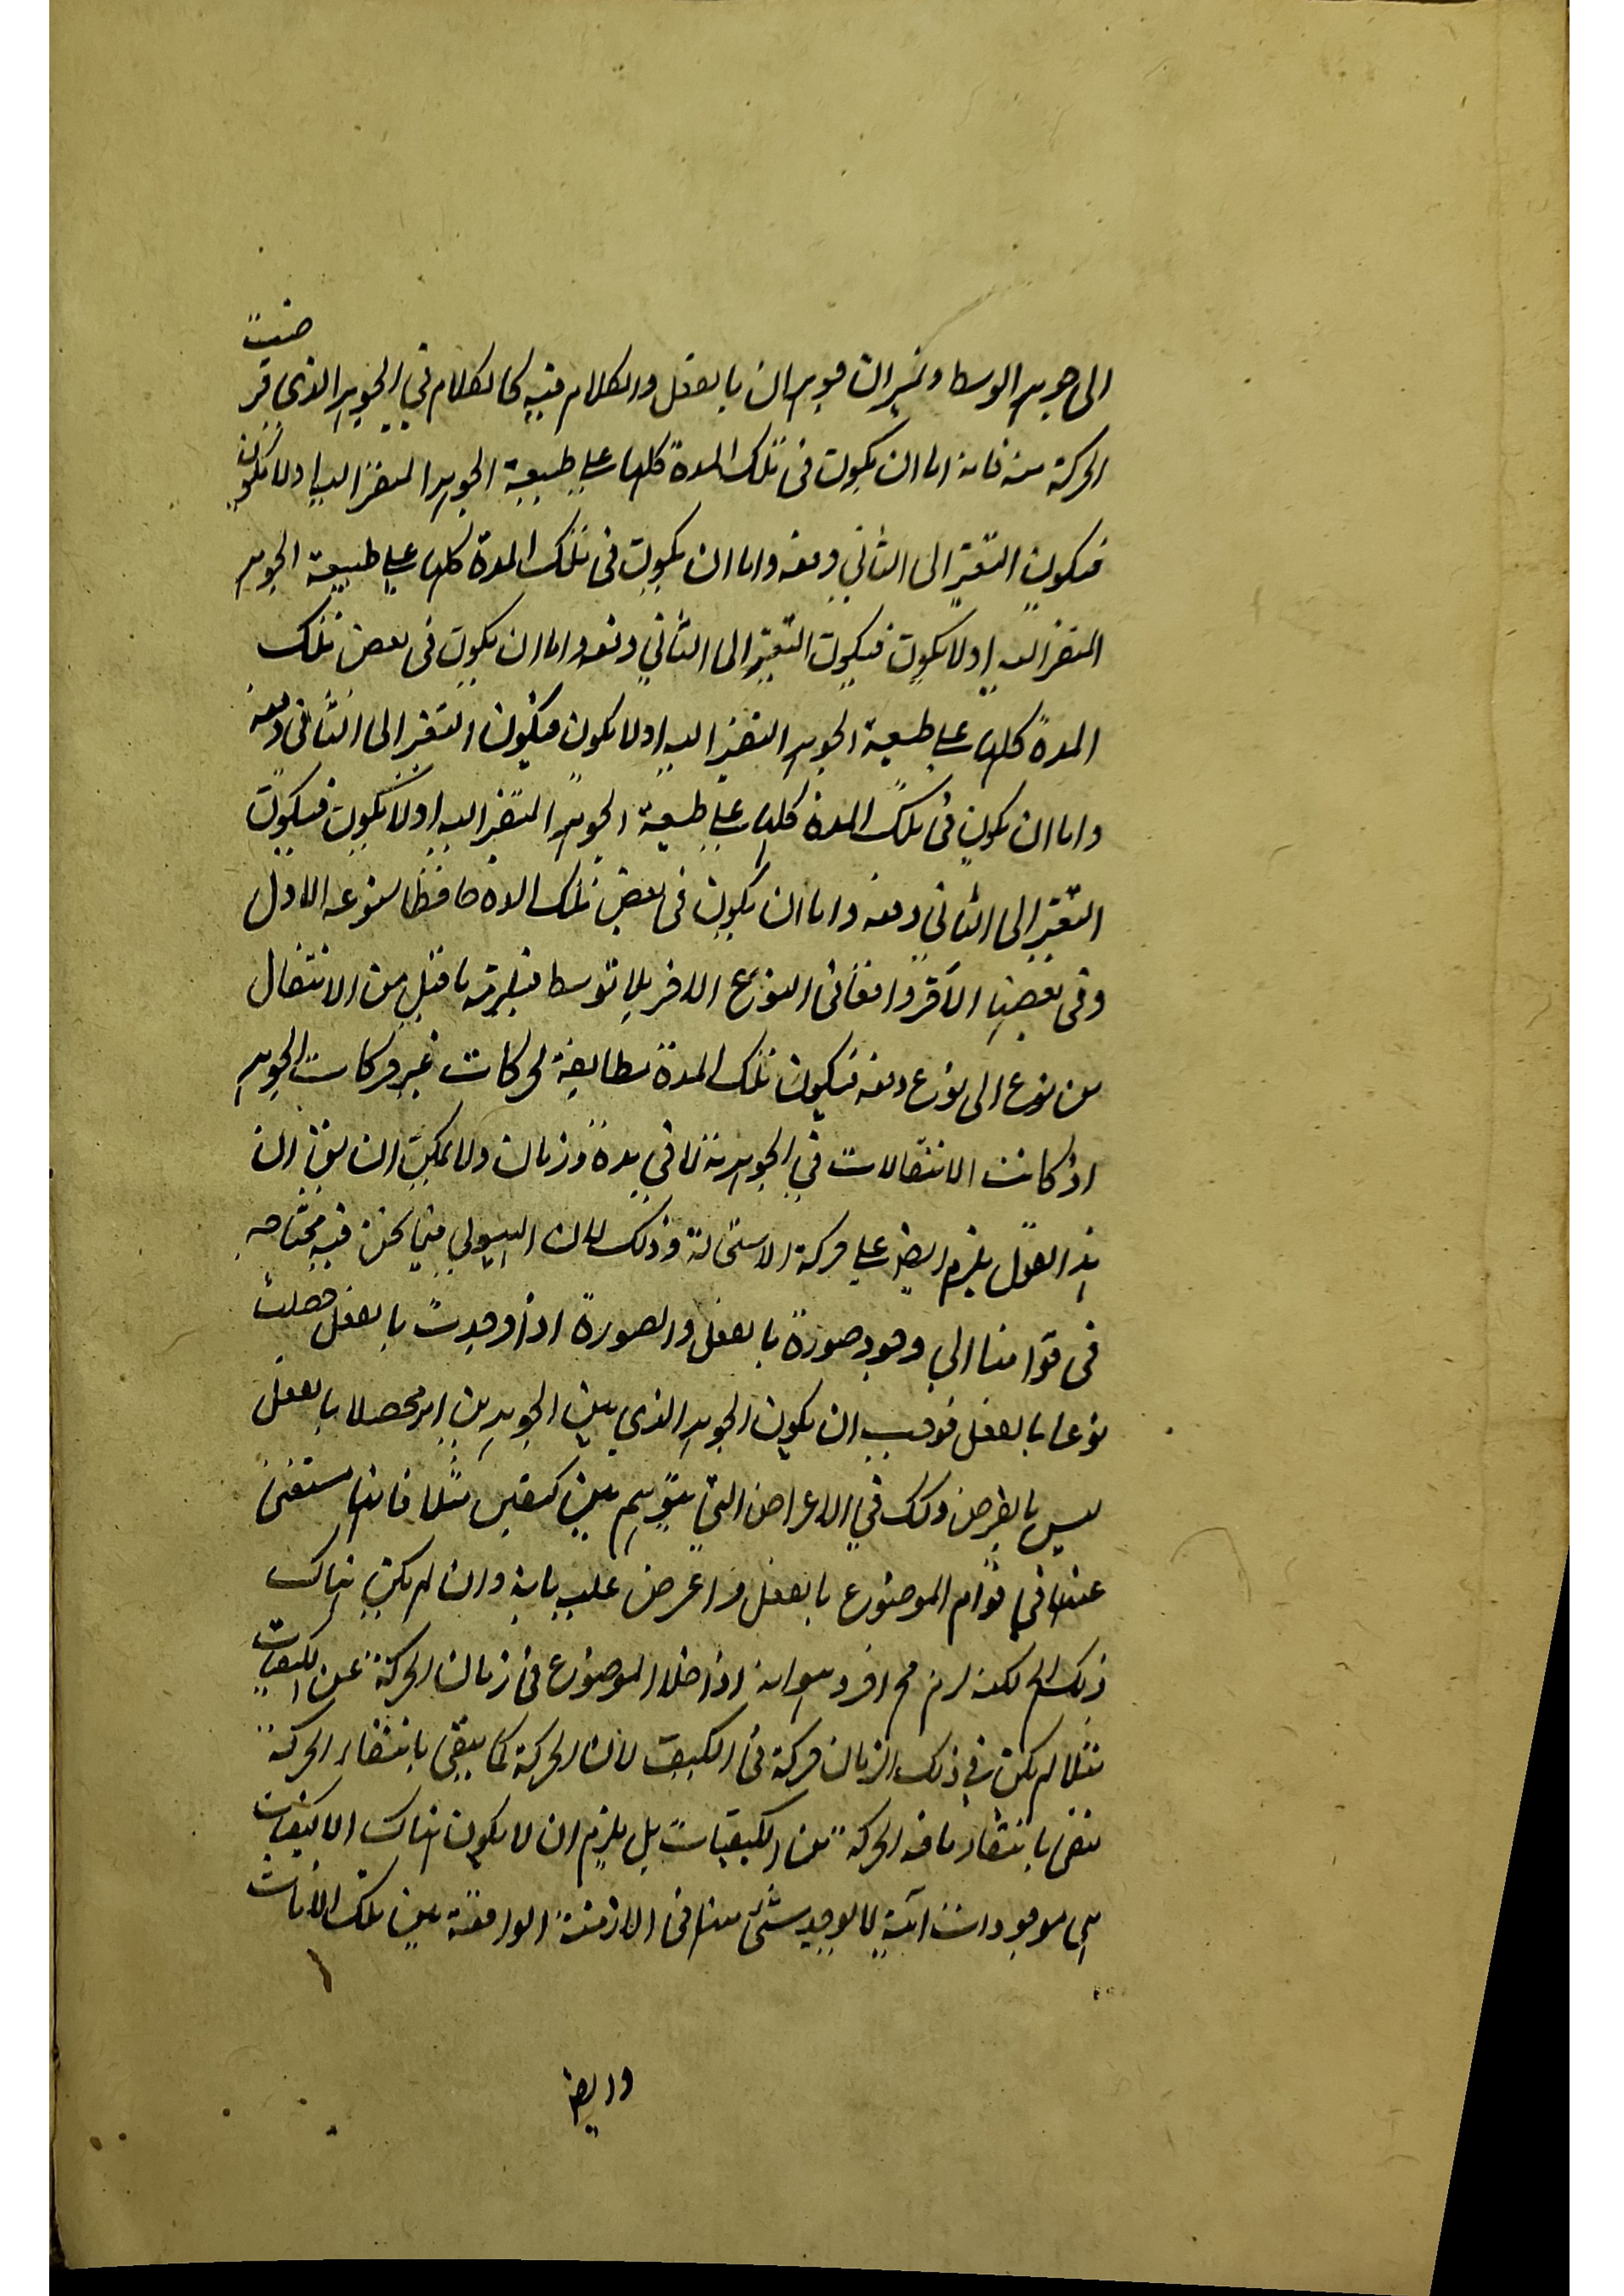 الى جوهر الوسط وتميز ان جوهر ان بالفعل والكلام فيه كالكلام في الجوهر الذي فر
ضت
الحركة منه فانه اما ان يكون فى تلك المدة كلها على طبيعة الجوهر المتغير اليه اولا يكون
فيكون التغير الى الثاني دفعه واما ان يكون فى تلك المدة كلها على طبيعة الجوهر
المتغير اليه اولا يكون فيكون التغير الى الثاني دفعه واما ان يكون فى بعض تلك
المدة كلها على طبيعة الجوهر المتغير اليه اولا يكون فيكون التغير الى الثانى دفعه
واما ان يكون فى تلك المدة كلها على طبيعة الجوهر المتغير اليه اولا يكون فيكون
التغير الى الثانى دفعه واما ان يكون فى بعض تلك المدة حافظا لنوعه الاول
وفى بعضها الآخر واقعا فى النوع الاخر بلا توسط فيلزمه ما قيل من الانتقال
من نوع الى نوع دفعه فيكون تلك المدة مطابقة لحركات غير حركات الجوهر
اذ كانت الانتقالات في الجوهرية لا في مدة وزمان ولا يمكن ان يق ان
هذا القول يلزم ايضا على حركة الاستحالة وذلك لان الهيولى فيما نحن فيه محتاجه
فى قوامها الى وجود صورة بالفعل والصورة اذا وجدت بالفعل حصلت
نوعا بالفعل فوجب ان يكون الجوهر الذى بين الجوهرين امر محصلا بالفعل
ليس بالفرض وكك في الاعراض التي يتوهم بين كيفين مثلا فانها مستغنى
عنها في قوام الموضوع بالفعل واعرض عليه بانه وان لم يكن هناك
ذلك المح لكنه لزم مح اخر وهو انه اذا خلا الموضوع فى زمان الحركة عن الكيفيات
مثلا لم يكن في ذلك الزمان حركة فى الكيف لان الحركة كما ينتفى بانتفاء الحركة
ينتفى بانتفاء ما فيه الحركة من الكيفيات بل يلزم ان لا يكون هناك الا كيفيات
هى موجودات آنية لا يوجد شئ منها فى الازمنة الواقعة بين تلك الآنات
وايضا